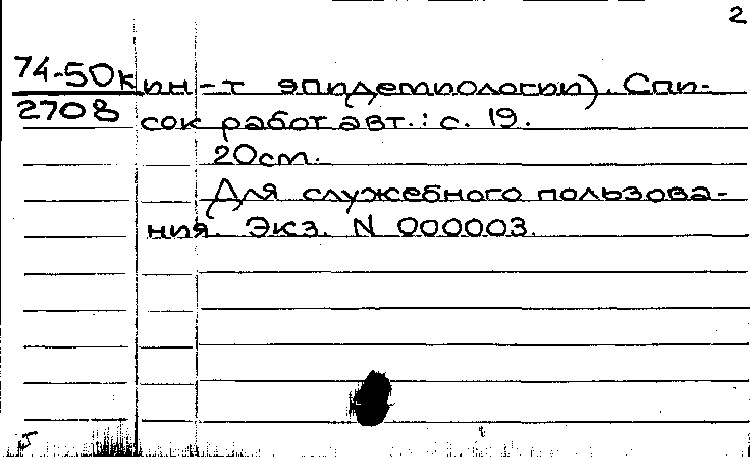 2
74-50к ин-т эпидемиологии). Спи-
2708 сок работ авт.: с. 19.
20см.
Для служебного пользова-
ния. Экз. N 000003.